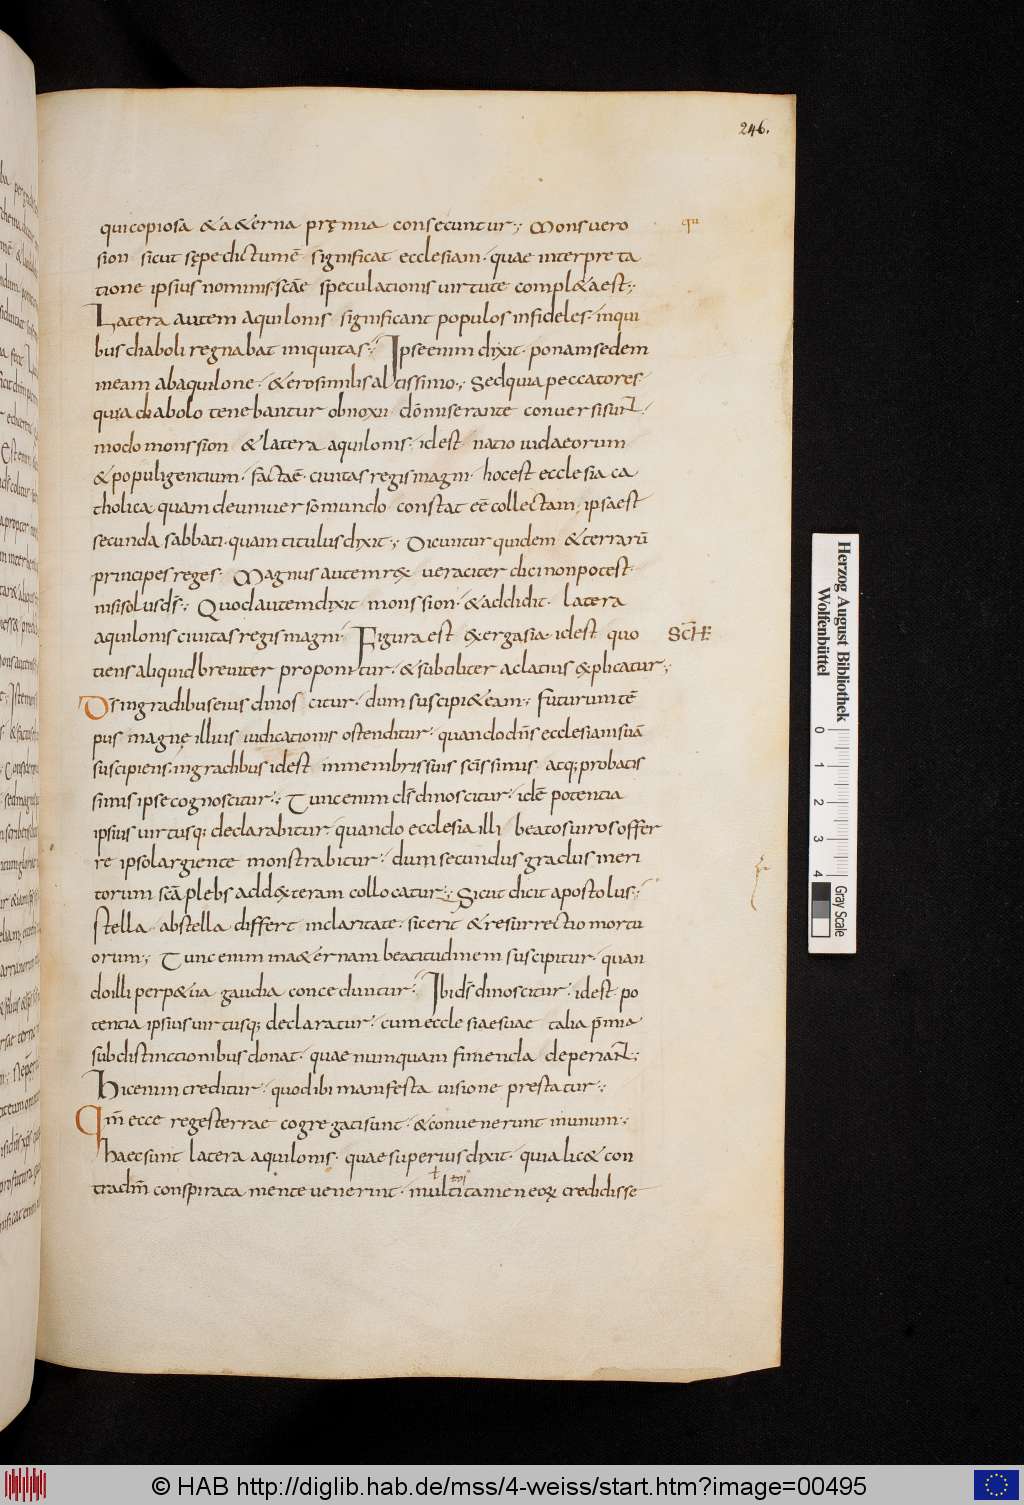 246.
qui copiosa & a&erna pręmia consecuntur; Mons vero
sion sicut sępe dictum ē significat ecclesiam. quae interpreta
tione ipsius nominis. scāe speculationis uirtute compl&a est;
Latera autem aquilonis significant populos infideles. in qui
bus diaboli regnabat iniquitas; Ipse enim dixit. ponam sedem
meam ab aquilone. & ero similis altissimo; Sed quia peccatores.
quia diabolo tenebantur obnoxii dn̄o miserante conuersi sunt.
modo mons sion & latera aquilonis. idest natio iudaeorum
& populi gentium. factae ē. ciuitas regis magni. hoc est ecclesia ca
tholica quam de uniuerso mundo constat eē collectam. ipsa est
secunda sabbati. quam titulus dixit; Dicuntur quidem & terrarū
principes reges. Magnus autem rex ueraciter dici non potest.
nisi solus ds̄; Quod autem dixit mons sion. & addidit. latera
aquilonis ciuitas regis magni. Figura est exergasia. idest quo
SCHE
tiens aliquid breuiter proponitur. & subtiliter ac latius explicatur;
Ds̄ in gradibus eius dinoscitur. dum suscipi& eam; Futurum tē
pus magnę illius iudicationis ostenditur. quando dn̄s ecclesiam suā
suscipiens. in gradibus idest in membris suis scīssimis atq; probatis
simis ipse cognoscitur; Tunc enim ds̄ dinoscitur. idē potentia
ipsius uirtusq; declarabitur. quando ecclesia illi beatos uiros offer
re ipso largiente monstrabitur. dum secundus gradus meri
torum scā plebs ad dexteram collocatur; Sicut dicit apostolus;
stella ab stella differt in claritate. sic erit & resurrectio mortu
orum; Tunc enim in a&ernam beatitudinem suscipitur. quan
do illi perp&ua gaudia conceduntur. Ibi ds̄ dinoscitur. idest po
tentia ipsius uirtusq; declaratur. cum ecclesiae suae talia p̄mia
sub distinctionibus donat. quae numquam finienda deperiant;
Hic enim creditur. quod ibi manifesta uisione prestatur;
Qm̄ ecce reges terrae congregati sunt. & conuenerunt in unum;
haec sunt latera aquilonis. quae superius dixit. quia lic& con
tra dn̄m conspirata mente uenerint. multi tamen eorum credidisse
Herzog August Bibliothek
Wolfenbüttel
0 1 2 3 4
Gray Scale
© HAB http://diglib.hab.de/mss/4-weiss/start.htm?image=00495